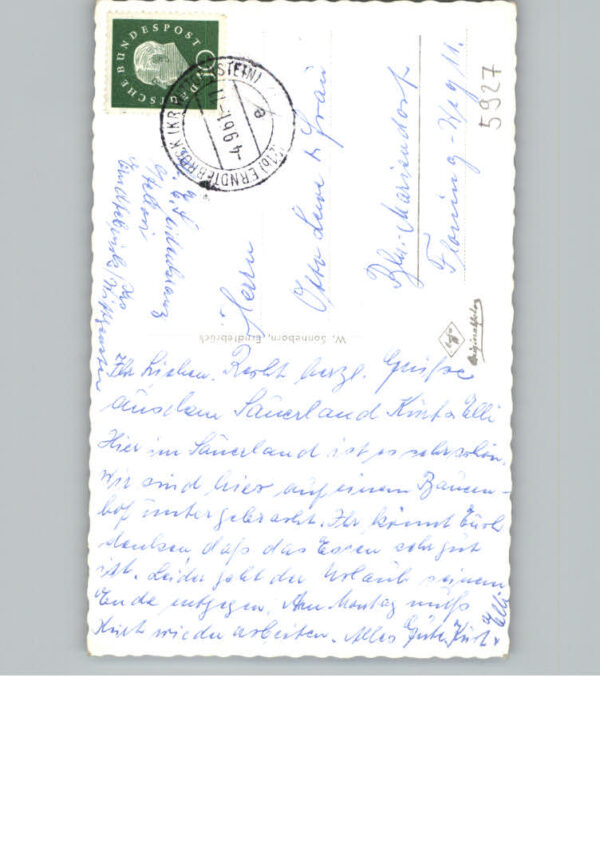 DEUTSCHE BUNDESPOST
(21b) ERNDTEBRÜCK (KR. WITTGENSTEIN)
4.9.61-17
e
5927
Herrn
Otto & Frau
Bln.-Mariendorf
Weg 11.
W. Sonneborn, Erndtebrück
Originalfoto
Erndtebrück / Krs
Wittgenstein
Ihr Lieben. Recht herzl. Grüße
aus dem Sauerland Kurt & Elli
Hier im Sauerland ist es sehr schön.
Wir sind hier auf einem Bauern-
hof untergebracht. Ihr könnt Euch
denken, daß das Essen sehr gut
ist. Leider geht der Urlaub seinem
Ende entgegen. Am Montag muß
Kurt wieder arbeiten. Alles Gute Kurt &
Elli